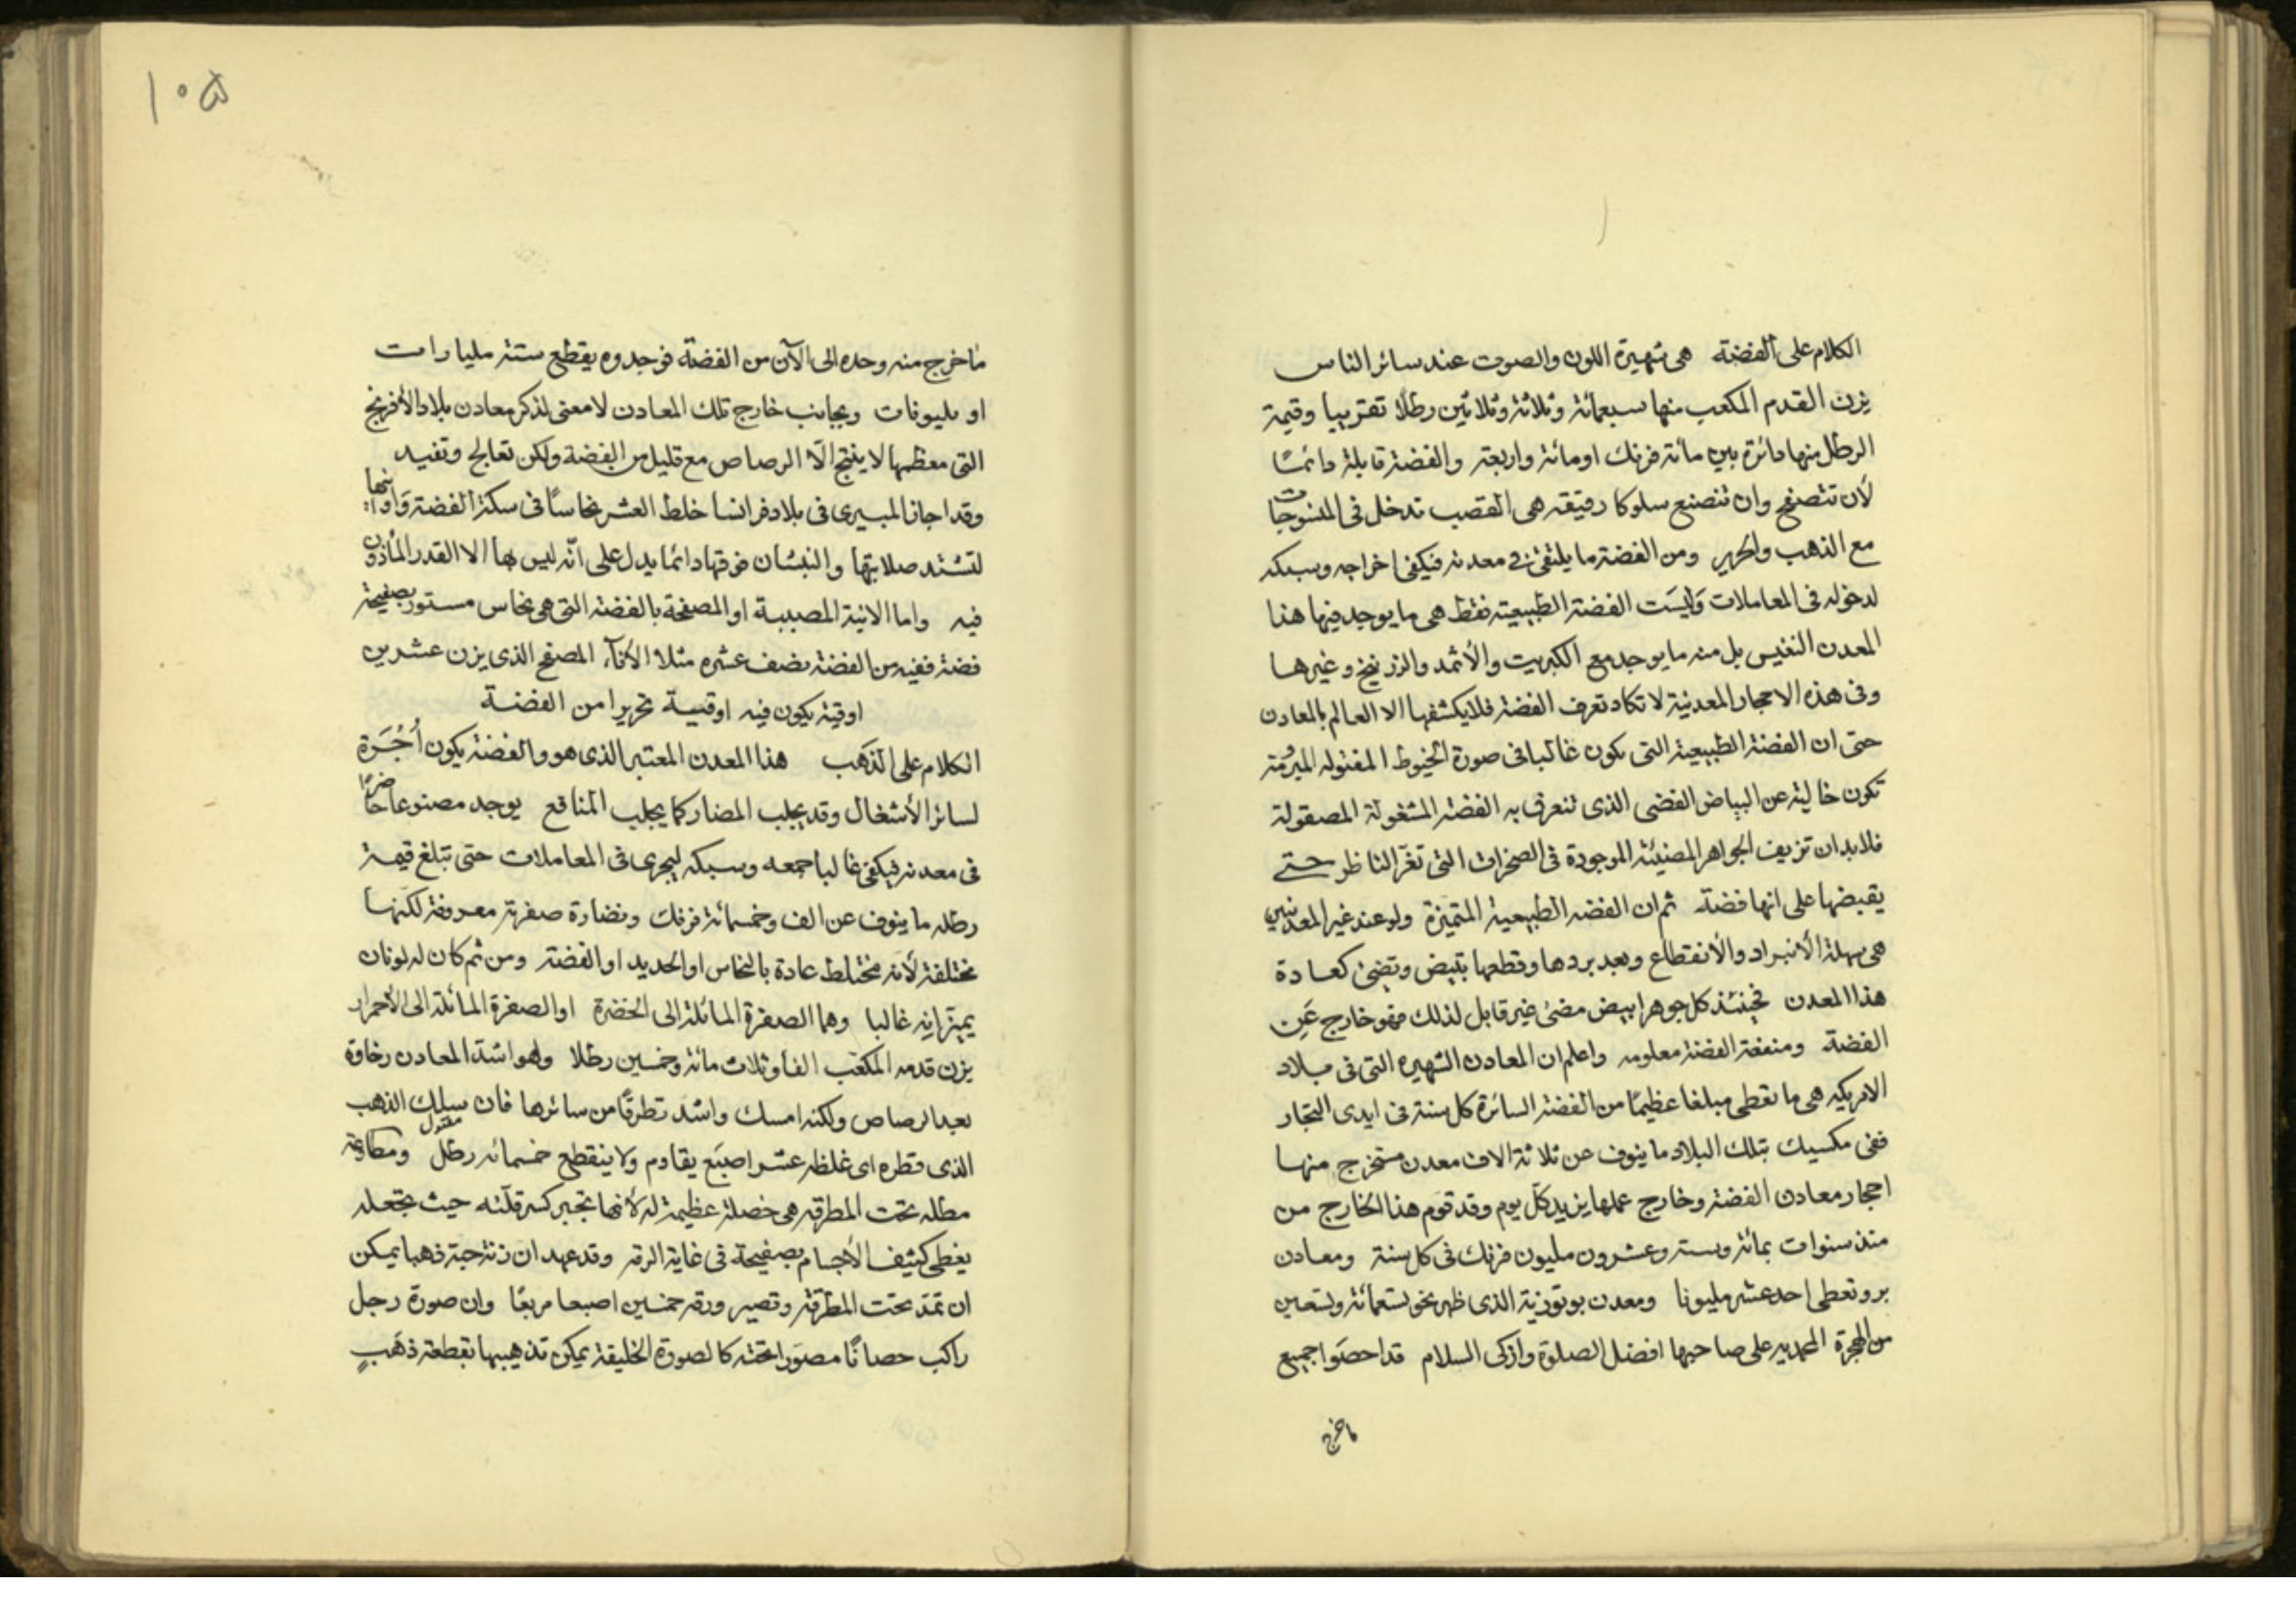 الكلام على الفضة هى شهيرة اللون والصوت عند سائر الناس
يزن القدم المكعب منها سبعمائة وثلاثة وثلاثين رطلا تقريبا وقيمة
الرطل منها دائرة بين مائة فرنك او مائة واربعة والفضة قابلة دائمًا
لأن تتصفح وان تنصنع سلوكا رقيقة هى القصب تدخل فى المنسوجات
مع الذهب والحرير ومن الفضة ما يلتقى فى معدنه فيكفى اخراجه وسبكه
لدخوله فى المعاملات وَليسَت الفضة الطبيعية فقط هى ما يوجد فيها هذا
المعدن النفيس بل منه ما يوجد مع الكبريت والأثمد والزرنيخ وغيرها
وفى هذه الاحجار المعدنية لا تكاد تعرف الفضة فلا يكشفها الا العالم بالمعادن
حتى ان الفضة الطبيعية التى تكون غالبا فى صورة الخيوط المفتوله
تكون خالية عن البياض الفضى الذى تتعرف به الفضة المشغولة المصقولة
فلابد ان تزيف الجواهر المضيئة الموجودة فى الصخرات التى تغرّ الناظر حتى
يقبضها على انها فضة ثم ان الفضة الطبيعية المتميزة ولو عند غير المعدنيين
هى سهلة الأنبراد والأنقطاع وبعد بردها وقطعها تبيض وتضئ كعادة
هذا المعدن فحينئذ كل جوهر ابيض مضئ غير قابل لذلك فهو خارج عَن
الفضة ومنفعة الفضة معلومه واعلم ان المعادن الشهيره التى فى بلاد
الامريكه هى ما تعطى مبلغا عظيمًا من الفضة السائرة كل سنة فى ايدى التجار
ففى مكسيك بتلك البلاد ما ينوف عن ثلاثة الاف معدن مستخرج منها
احجار معادن الفضة وخارج عملها يزيد كلّ يوم وقد قوّم هذا الخارج من
منذ سنوات بمائة وستة وعشرون مليون فرنك فى كل سنة ومعادن
برو تعطى احد عشر مليونا ومعدن بوتوزية الذى ظهر نحو تسعمائة وتسعين
من الهجرة المحمديه على صاحبها افضل الصلوة وازكى السلام قد احصَوا جميع
ماخرج
١٠٥
ماخرج منه وحده الى الآن من الفضة فوجدوه يقطع ستة مليارات
او بليونات وبجانب خارج تلك المعادن لا معنى لذكر معادن بلاد الأفرنج
التى معظمها لا ينتج الّا الرصاص مع قليل من الفضة ولكن تعالج وتفيد
وقد اجاز الميرى فى بلاد فرانسا خلط العشر نحاسًا فى سكة الفضة وَاوانيها
لتشتد صلابتها والنيشان فوقها دائما يدل على انّه ليس بها الا القدر المأذون
فيه واما الانية المصببة او المصفحة بالفضة التى هى نحاس مستور بصفيحة
فضة ففيه من الفضة نصف عشره مثلا الأناء المصفح الذى يزن عشرين
اوقية يكون فيه اوقية تحريرا من الفضة
الكلام على الذَهَب هذا المعدن المعتبر الذى هو والفضة يكون أُجْرَة
لسائر الأشغال وقد يجلب المضار كما يجلب المنافع يوجد مصنوعا حاضرًا
فى معدنه فيكفى غالبا جمعه وسبكه ليجرى فى المعاملات حتى تبلغ قيمة
رطله ما ينوف عن الف وخمسمائة فرنك ونضارة صفرته معروفة لكنها
مختلفة لأنه مختلط عادة بالنحاس او الحديد او الفضة ومن ثم كان له لونان
يميزانه غالبا وهما الصفرة المائلة الى الخضرة او الصفرة المائلة الى الأحمرار
يزن قدمه المكعب الفا وثلاث مائة وخمسين رطلا وهو اشدّ المعادن رخاوة
بعد الرصاص ولكنه امسك واشد تطرقًا من سائرها فان سلك الذهب
الذى قطره اى غلظه عشر اصبَع يقاوم ولا ينقطع خمسمائة رطل ومطاوعة
مطله تحت المطرقة هى خصلة عظيمة له لأنها تجبر كسر قلّته حيث تجعله
يغطى كثيف الأجسام بصفيحة فى غاية الرقة وقد عهد ان زنة حبة ذهبا يمكن
ان تمتد تحت المطرقة وتصير ورقة خمسين اصبعا مربعًا وان صورة رجل
راكب حصانًا مصوّرا تحته كالصورة الخليقة يمكن تذهيبها بقطعة ذهَبٍ